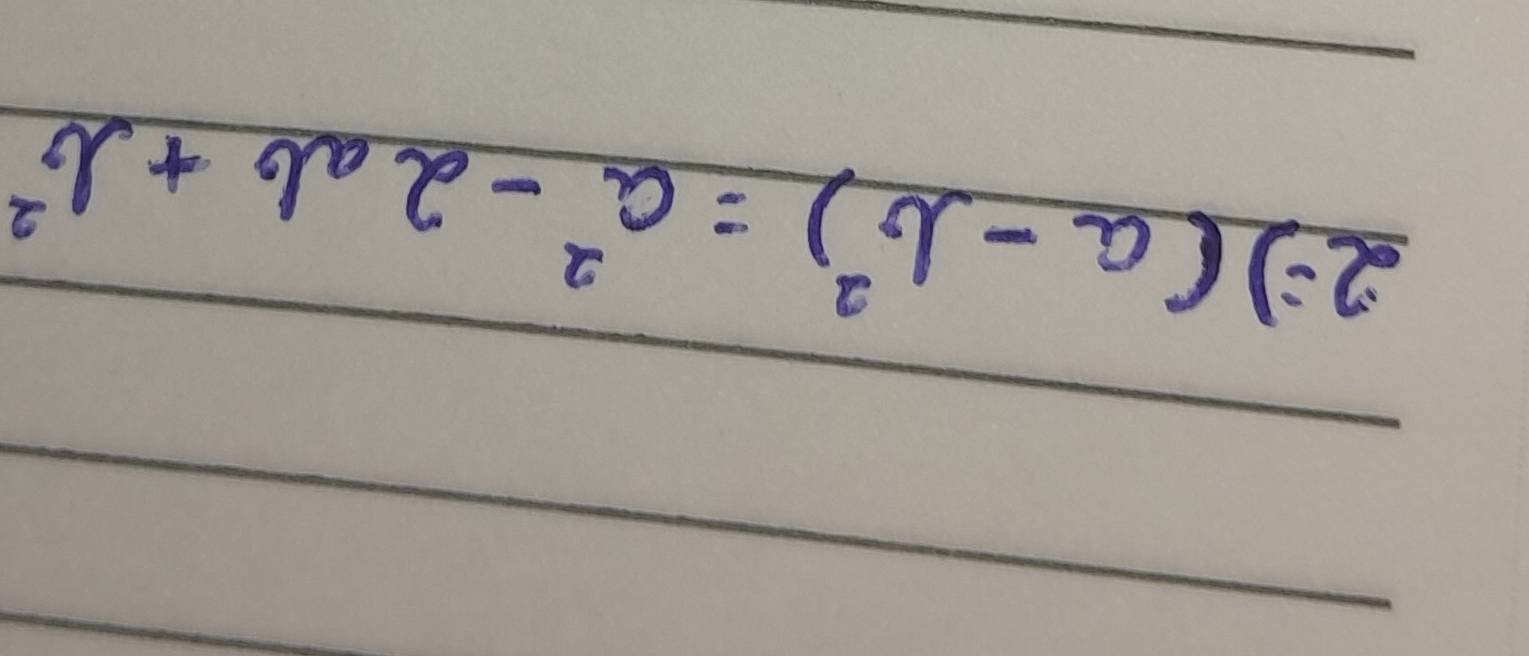 2=) (a - b²) = a² - 2ab + b²